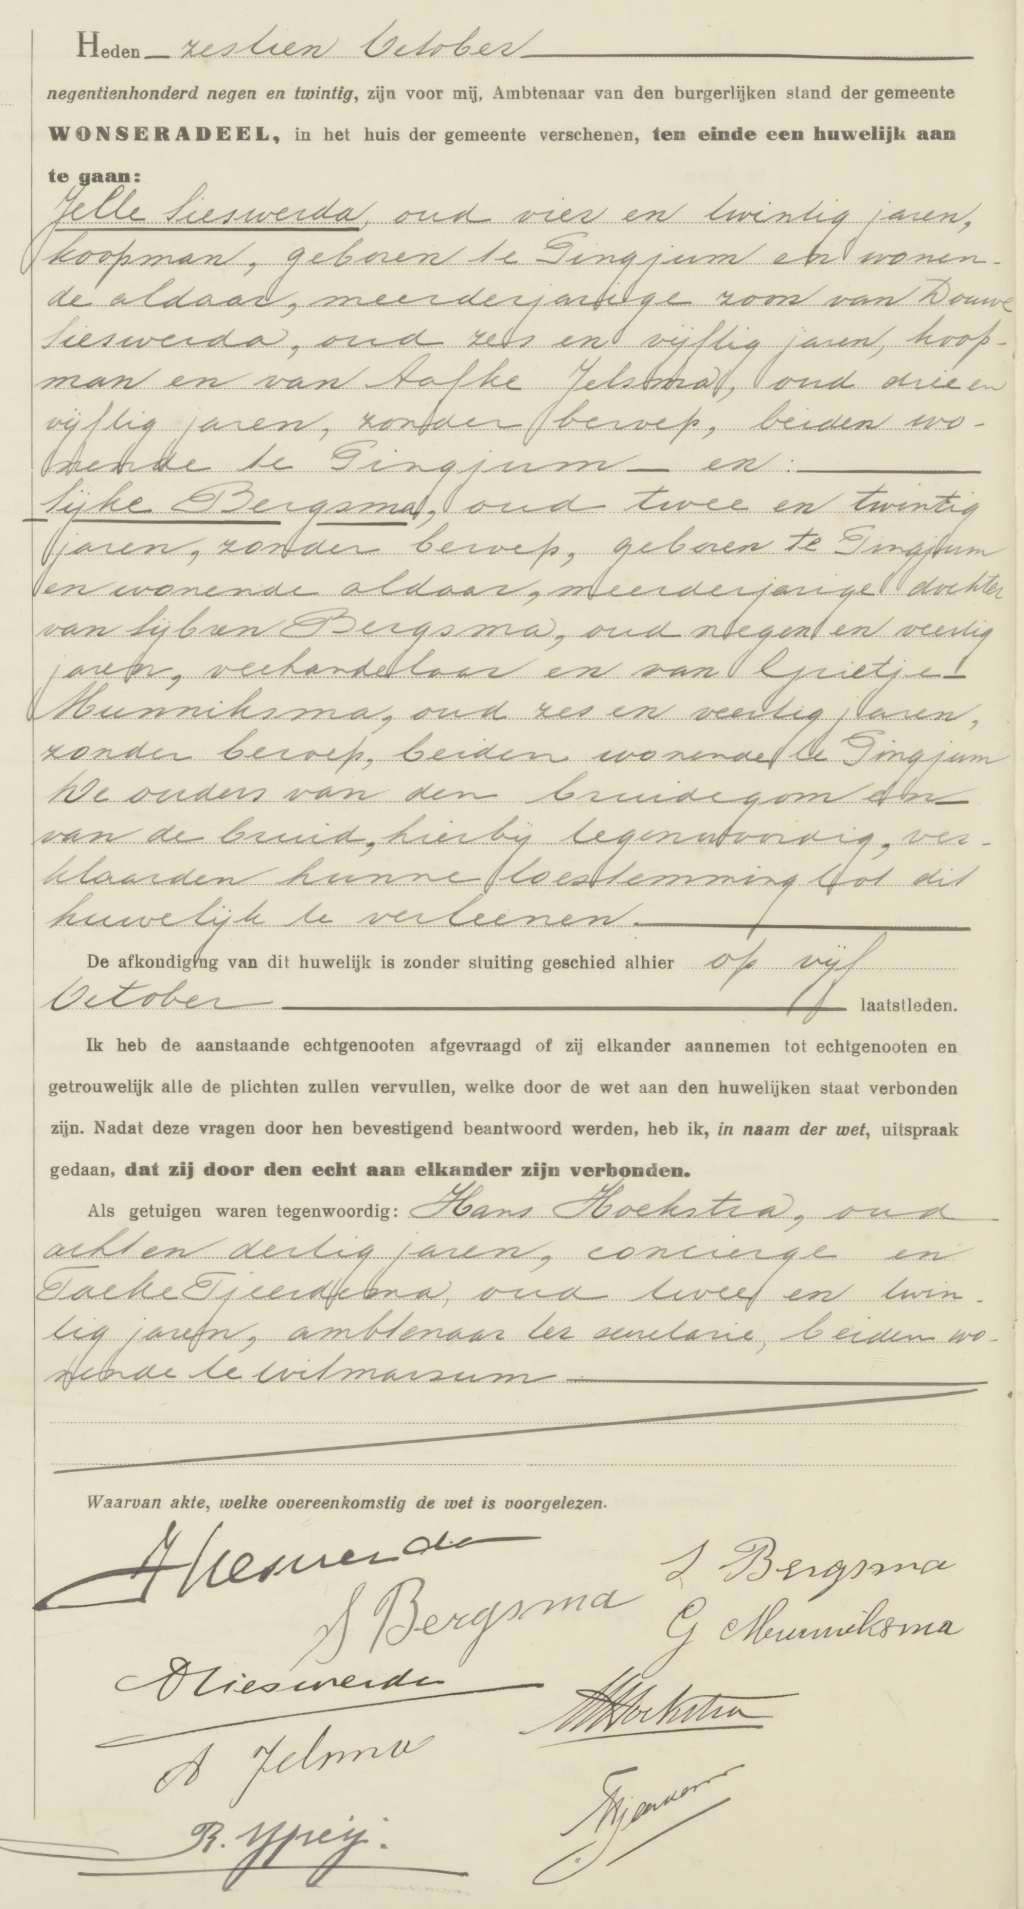 Heden zestien October
negentienhonderd negen en twintig, zijn voor mij, Ambtenaar van den burgerlijken stand der gemeente
WONSERADEEL, in het huis der gemeente verschenen, ten einde een huwelijk aan
te gaan:
Jelle Sieswerda, oud vier en twintig jaren,
koopman, geboren te Pingjum en wonen-
de aldaar, meerderjarige zoon van Douwe
Sieswerda, oud zes en vijftig jaren, koop-
man en van Aafke Jelsma, oud drie en
vijftig jaren, zonder beroep, beiden wo-
nende te Pingjum en:
Sijke Bergsma, oud twee en twintig
jaren, zonder beroep, geboren te Pingjum
en wonende aldaar, meerderjarige dochter
van Sijbren Bergsma, oud negen en veertig
jaren, veehandelaar en van Grietje
Munniksma, oud zes en veertig jaren,
zonder beroep, beiden wonende te Pingjum
De ouders van den bruidegom en
van de bruid, hierbij tegenwoordig, ver-
klaarden hunne toestemming tot dit
huwelijk te verleenen.
De afkondiging van dit huwelijk is zonder stuiting geschied alhier op vijf
October laatstleden.
Ik heb de aanstaande echtgenooten afgevraagd of zij elkander aannemen tot echtgenooten en
getrouwelijk alle de plichten zullen vervullen, welke door de wet aan den huwelijken staat verbonden
zijn. Nadat deze vragen door hen bevestigend beantwoord werden, heb ik, in naam der wet, uitspraak
gedaan, dat zij door den echt aan elkander zijn verbonden.
Als getuigen waren tegenwoordig: Hans Hoekstra, oud
acht en dertig jaren, concierge en
Taeke Tjeerdema, oud twee en twin-
tig jaren, ambtenaar ter secretarie, beiden wo-
nende te Witmarsum
Waarvan akte, welke overeenkomstig de wet is voorgelezen.
J Sieswerda
S Bergsma
S Bergsma
G Munniksma
D Sieswerda
H Hoekstra
A Jelsma
T Tjeerdema
R. Ypeij.